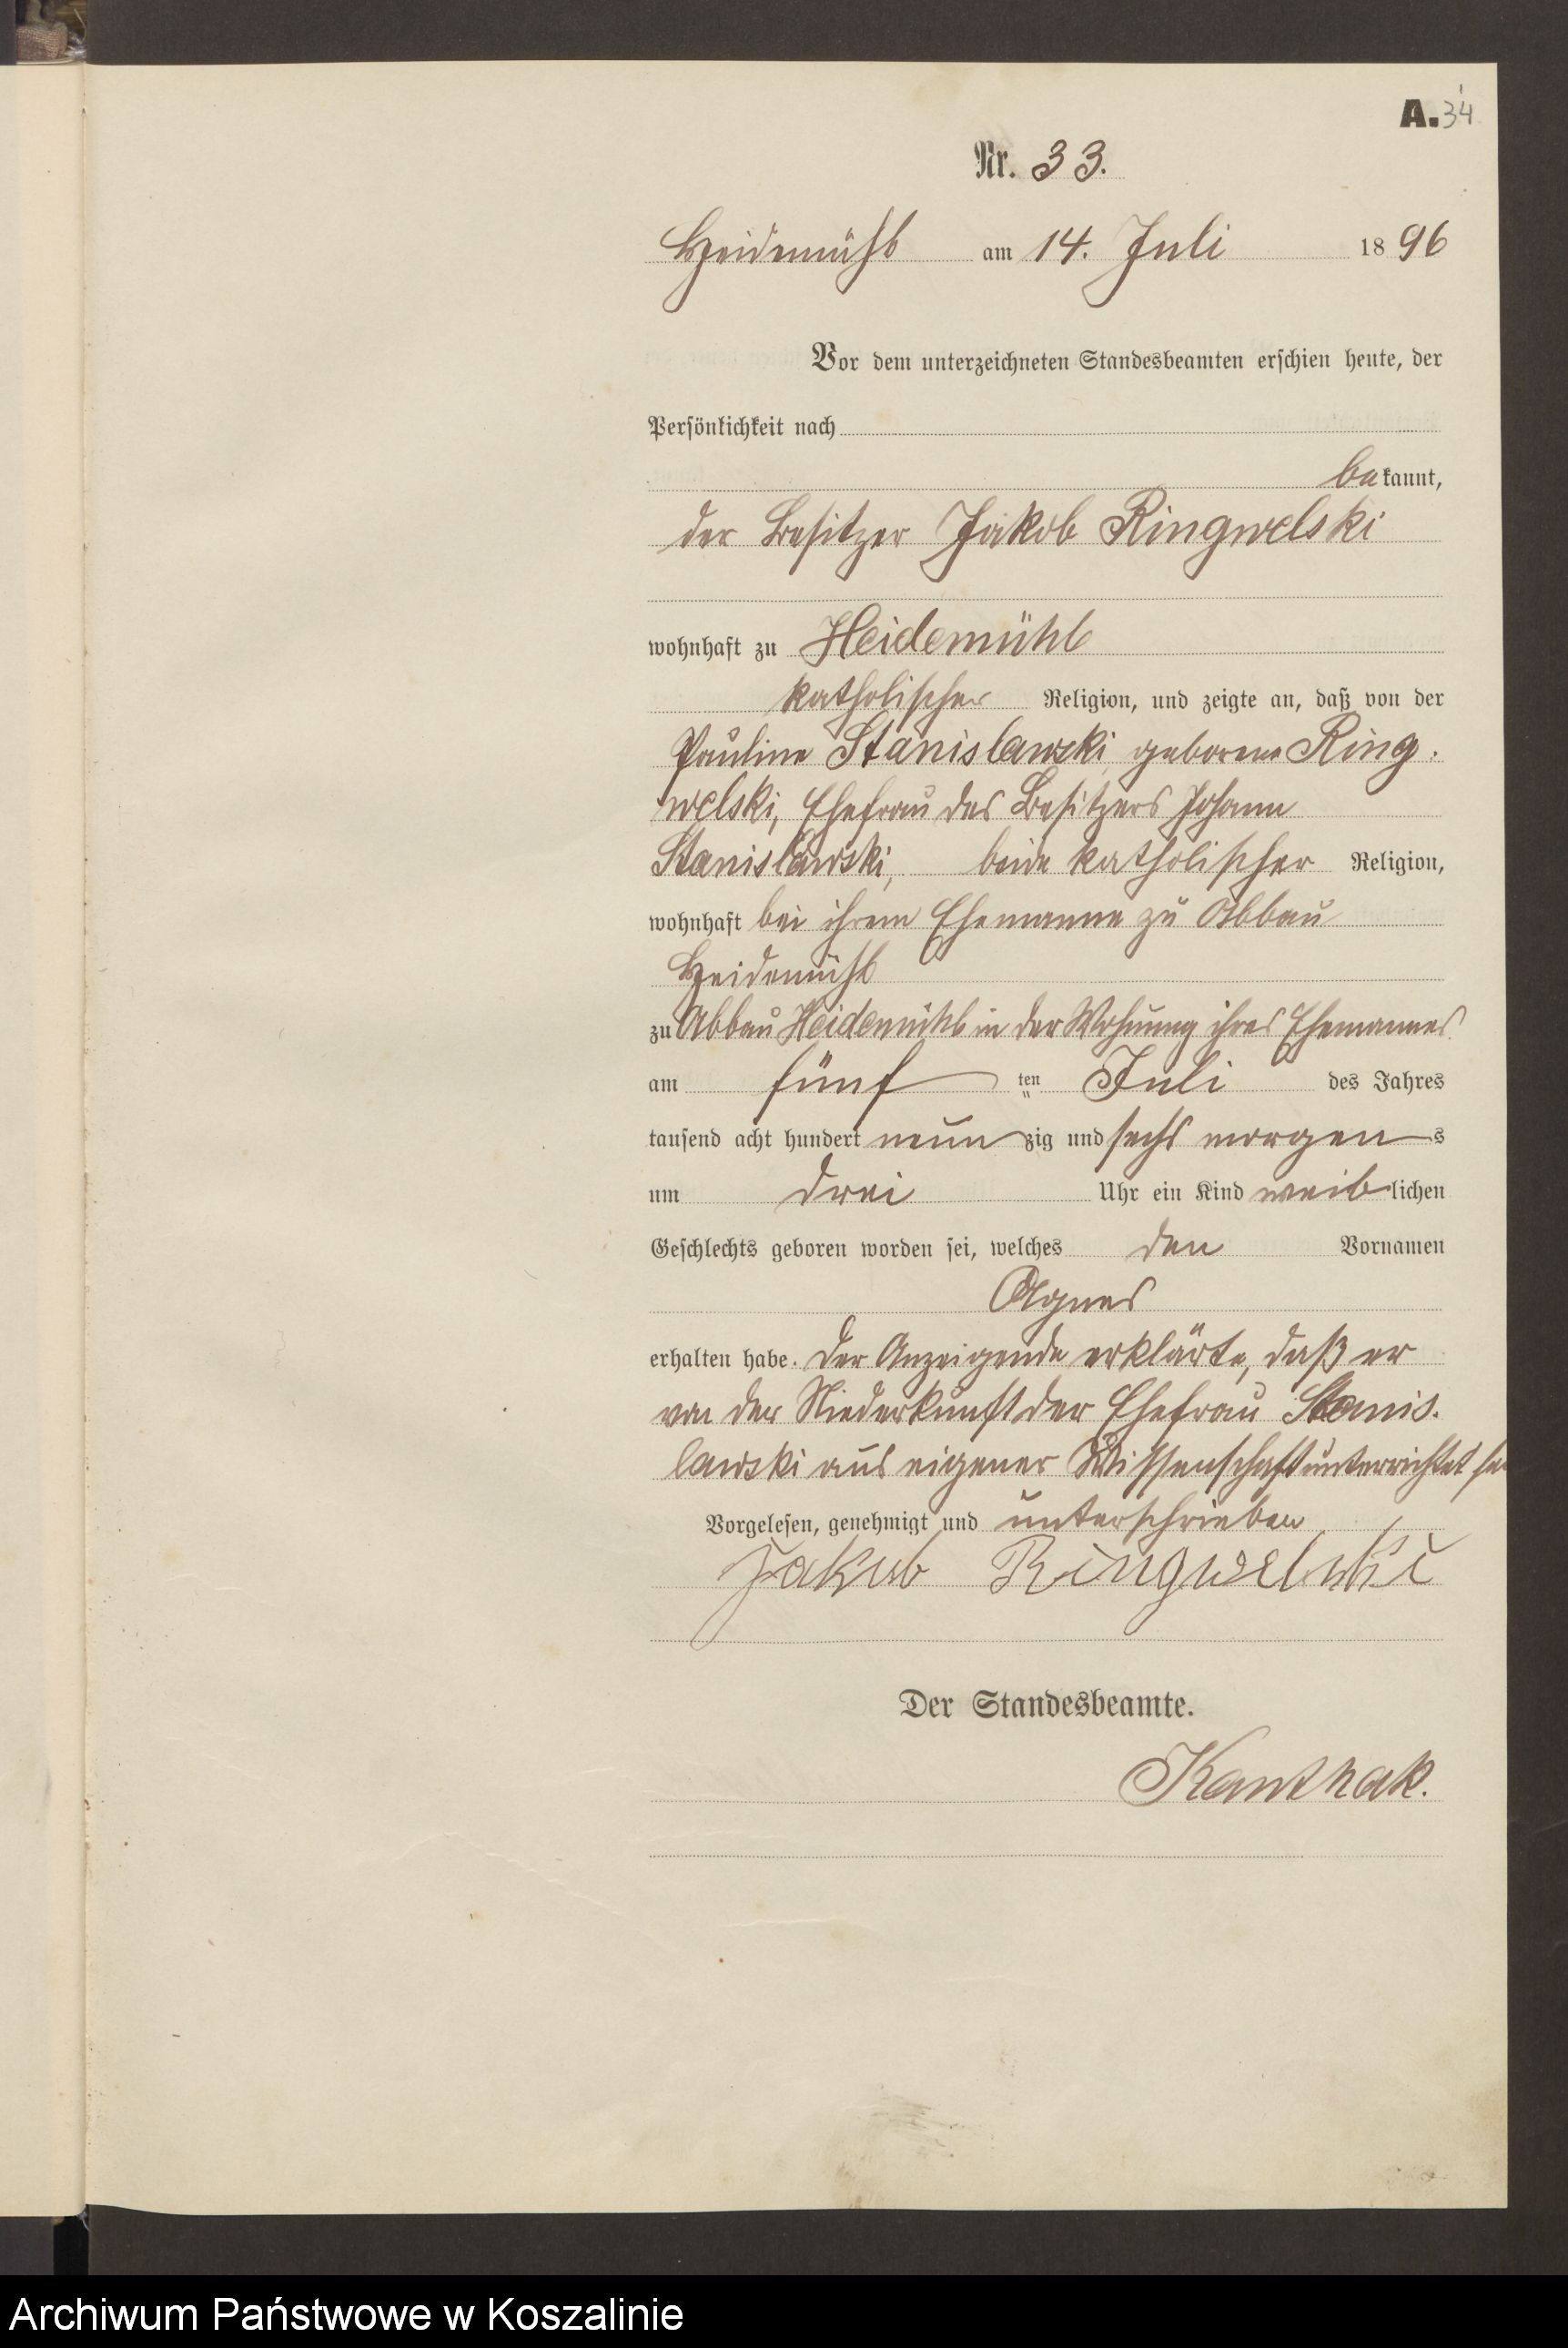 A. 34
Nr. 33.
Heidemühl am 14. Juli 1896
Vor dem unterzeichneten Standesbeamten erschien heute, der
Persönlichkeit nach
bekannt,
der Besitzer Jakob Ringwelski
wohnhaft zu Heidemühl
katholischer Religion, und zeigte an, daß von der
Pauline Stanislawski, geborene Ring-
welski, Ehefrau des Besitzers Johann
Stanislawski, beide katholischer Religion,
wohnhaft bei ihrem Ehemanne zu Abbau
Heidemühl
zu Abbau Heidemühl in der Wohnung ihres Ehemannes
am fünf ten Juli des Jahres
tausend acht hundert neunzig und sechs morgens
um drei Uhr ein Kind weiblichen
Geschlechts geboren worden sei, welches den Vornamen
Agnes
erhalten habe. Der Anzeigende erklärte, daß er
von der Niederkunft der Ehefrau Stanis-
lawski aus eigener Wissenschaft unterrichtet sei
Vorgelesen, genehmigt und unterschrieben
Jakob Ringwelski
Der Standesbeamte.
Kanthak.
Archiwum Państwowe w Koszalinie